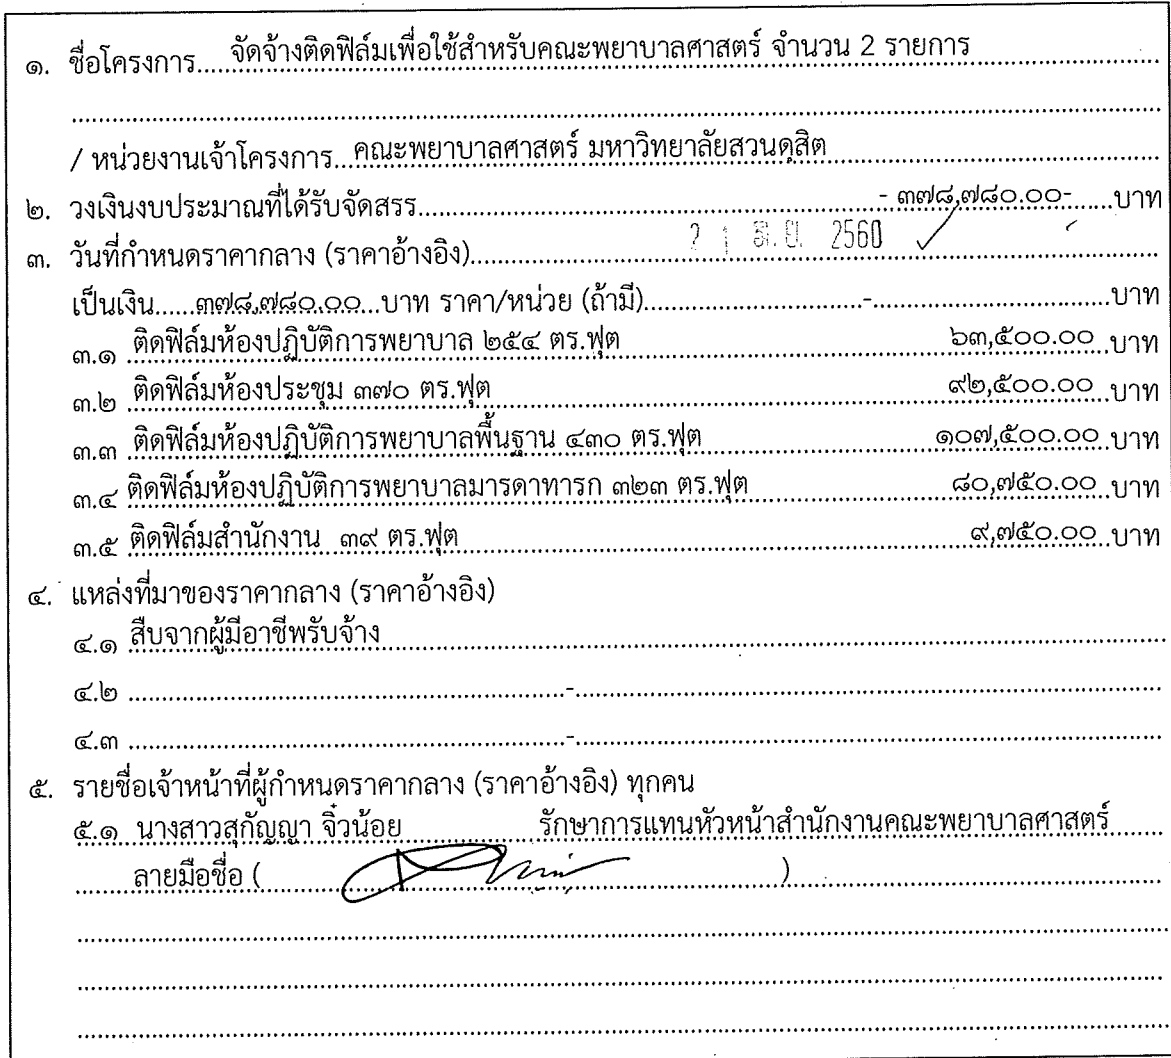 ๑. ชื่อโครงการ.....จัดจ้างติดฟิล์มเพื่อใช้สำหรับคณะพยาบาลศาสตร์ จำนวน 2 รายการ
/ หน่วยงานเจ้าโครงการ...คณะพยาบาลศาสตร์ มหาวิทยาลัยสวนดุสิต
๒. วงเงินงบประมาณที่ได้รับจัดสรร.....- ๓๗๘,๗๘๐.๐๐-.....บาท
๓. วันที่กำหนดราคากลาง (ราคาอ้างอิง).....2 1 มิ.ย. 2560
เป็นเงิน......๓๗๘,๗๘๐.๐๐...บาท ราคา/หน่วย (ถ้ามี).....-.....บาท
๓.๑ ติดฟิล์มห้องปฏิบัติการพยาบาล ๒๕๔ ตร.ฟุต ๖๓,๕๐๐.๐๐ บาท
๓.๒ ติดฟิล์มห้องประชุม ๓๗๐ ตร.ฟุต ๙๒,๕๐๐.๐๐ บาท
๓.๓ ติดฟิล์มห้องปฏิบัติการพยาบาลพื้นฐาน ๔๓๐ ตร.ฟุต ๑๐๗,๕๐๐.๐๐ บาท
๓.๔ ติดฟิล์มห้องปฏิบัติการพยาบาลมารดาทารก ๓๒๓ ตร.ฟุต ๘๐,๗๕๐.๐๐ บาท
๓.๕ ติดฟิล์มสำนักงาน ๓๙ ตร.ฟุต ๙,๗๕๐.๐๐ บาท
๔. แหล่งที่มาของราคากลาง (ราคาอ้างอิง)
๔.๑ สืบจากผู้มีอาชีพรับจ้าง
๔.๒ .....-.....
๔.๓ .....-.....
๕. รายชื่อเจ้าหน้าที่ผู้กำหนดราคากลาง (ราคาอ้างอิง) ทุกคน
๕.๑ นางสาวสุกัญญา จิ๋วน้อย รักษาการแทนหัวหน้าสำนักงานคณะพยาบาลศาสตร์
ลายมือชื่อ ( )